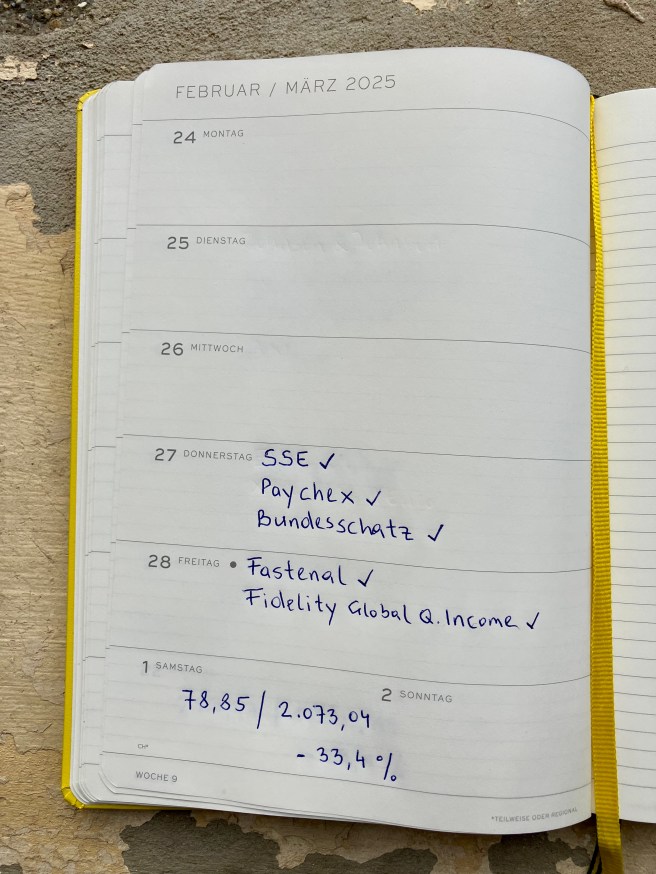 FEBRUAR / MÄRZ 2025
24 MONTAG
25 DIENSTAG
26 MITTWOCH
27 DONNERSTAG SSE ✓
Paychex ✓
Bundesschatz ✓
28 FREITAG • Fastenal ✓
Fidelity Global Q. Income ✓
1 SAMSTAG
2 SONNTAG
78,85 / 2.073,04
- 33,4 %
WOCHE 9
*TEILWEISE ODER REGIONAL